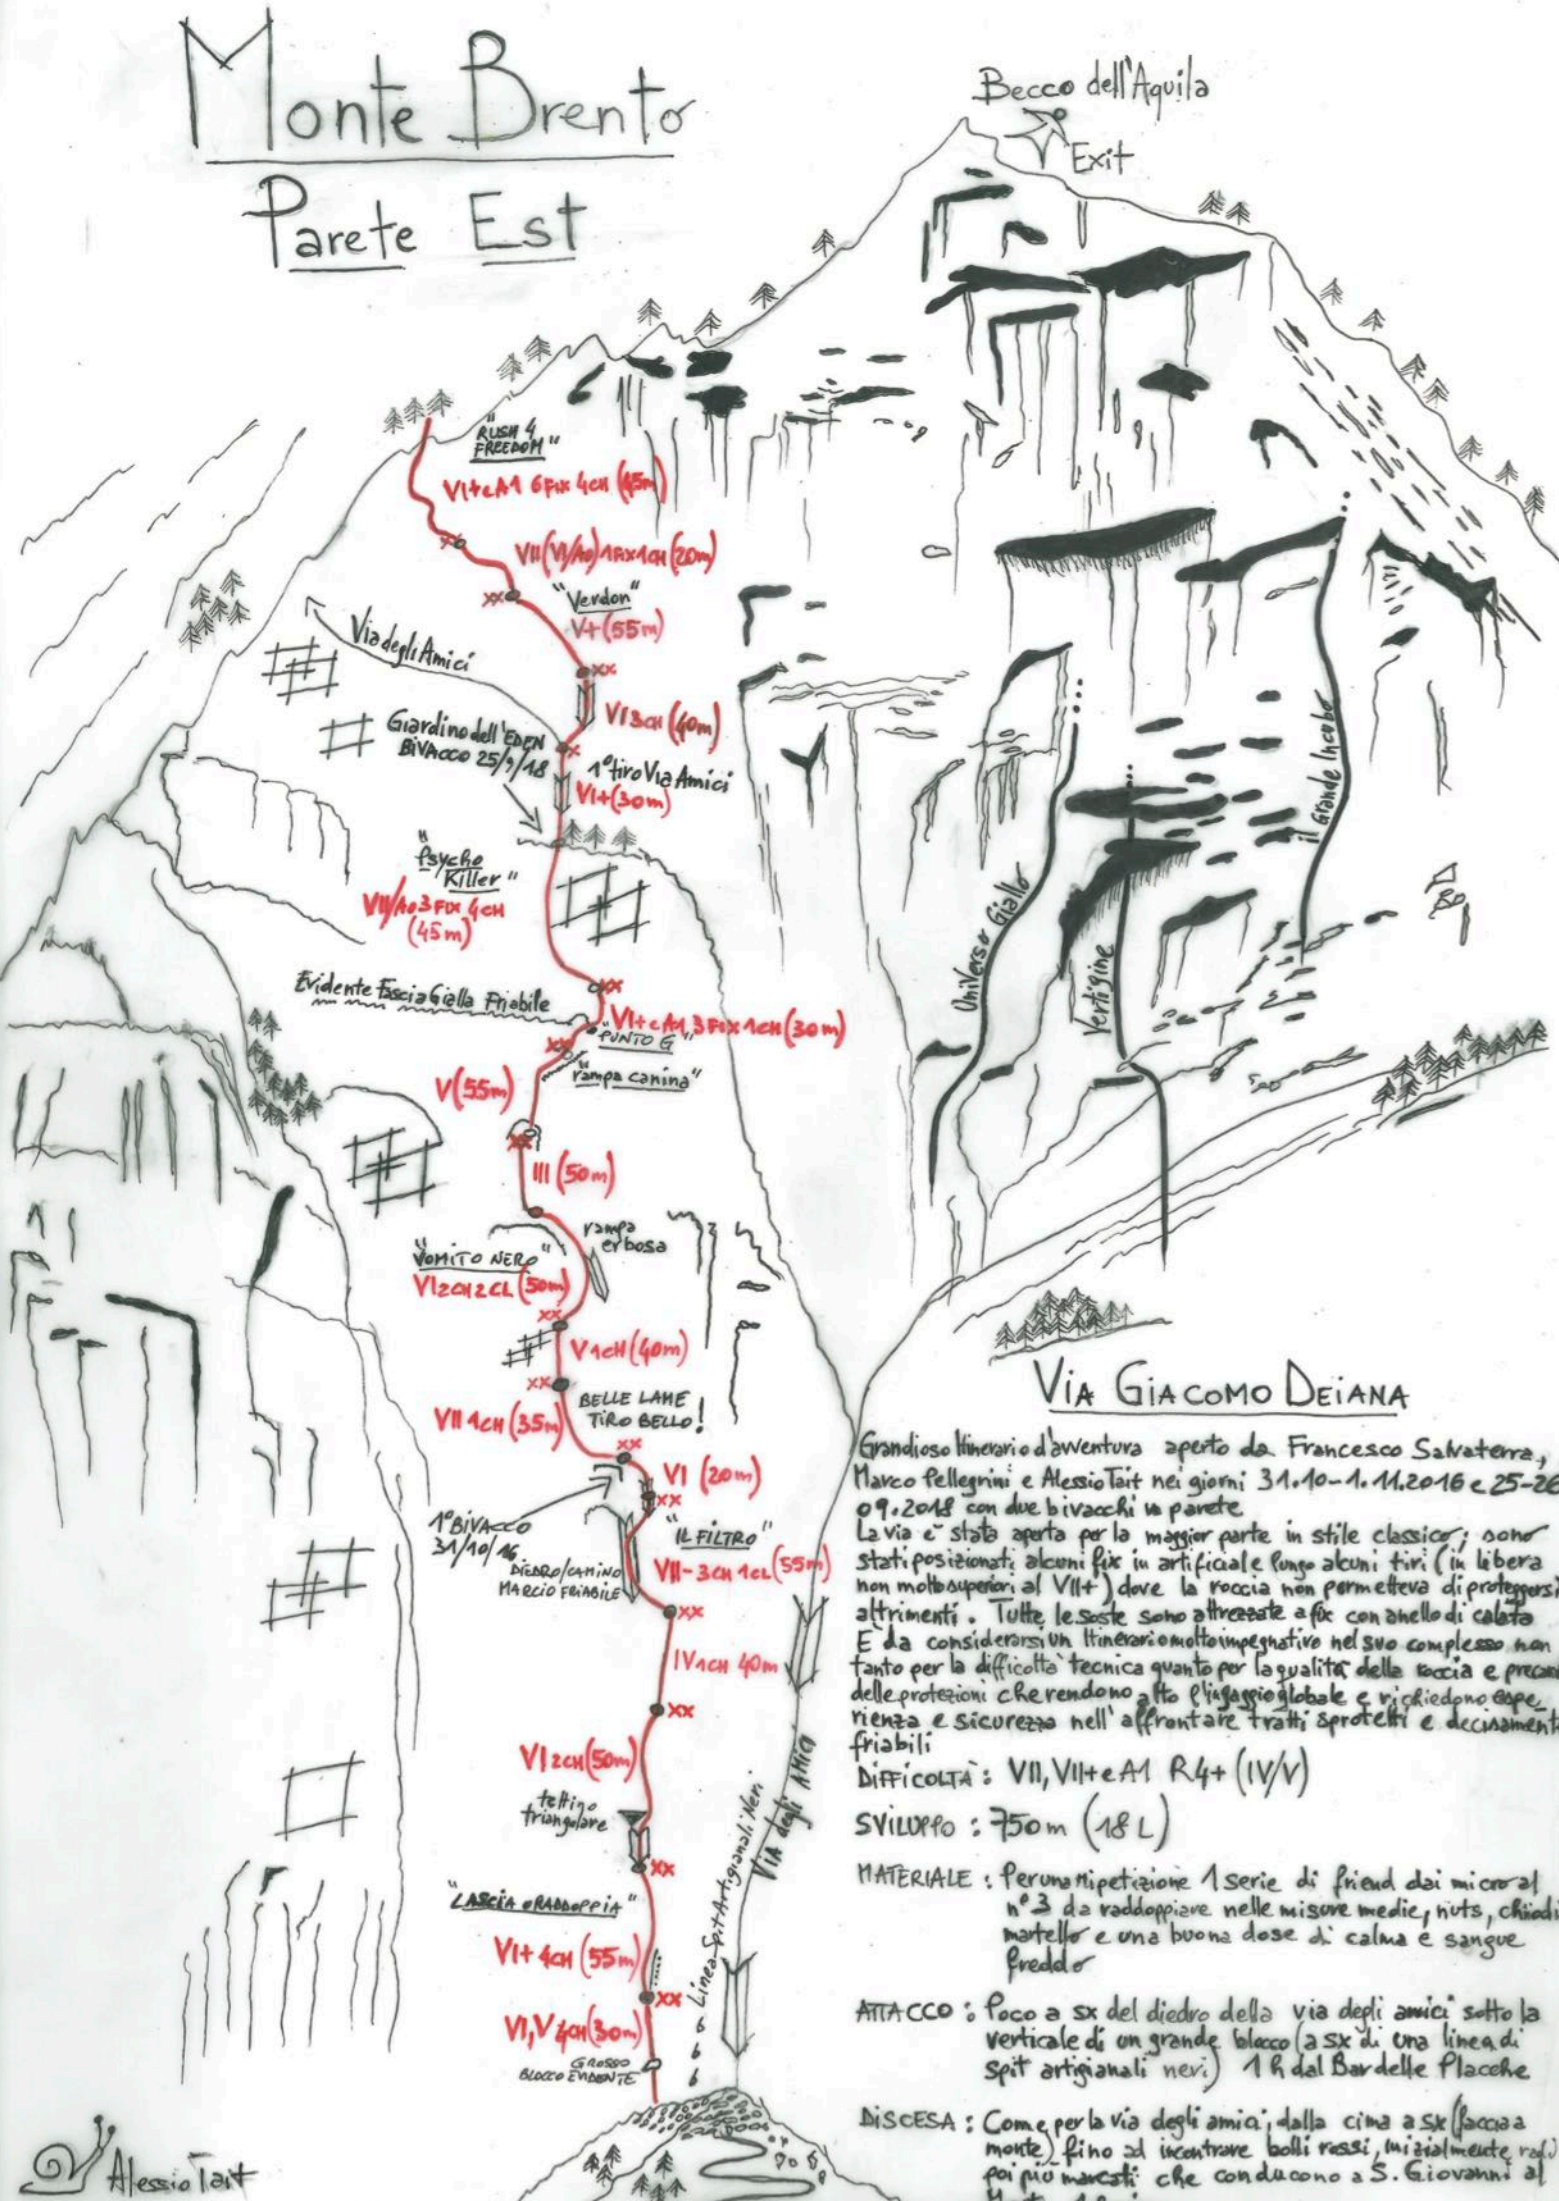 Monte Brento
Parete Est
Becco dell'Aquila
Exit
"RUSH 4
FREEDOM"
VI+eA1 6Fix 4CH (45m)
VII(VI/A0)1Fix1CH(20m)
"Verdon"
V+(55m)
Via degli Amici
VI3CH(40m)
Giardino dell'EDEN
BIVACCO 25/9/18
1° tiro Via Amici
VI+(30m)
"Psycho
Killer"
VII/A03Fix 4CH
(45m)
Evidente Fascia Gialla Friabile
VI+eA1,3Fix1CH(30m)
"PUNTO G"
"rampa canina"
V(55m)
III(50m)
rampa
erbosa
"VOMITO NERO"
VI2CH2CL(50m)
V1CH(40m)
BELLE LAME
TIRO BELLO!
VII1CH(35m)
VI(20m)
1°BIVACCO
31/10/16
"IL FILTRO"
DIEDRO/CAMINO
MARCIO FRIABILE
VII-3CH1CL(55m)
IV1CH 40m
VI2CH(50m)
tettino
triangolare
"LASCIA O RADDOPPIA"
VI+4CH(55m)
VI,V4CH(30m)
GROSSO
BLOCCO EVIDENTE
Linea Spit Artigianali Neri
Via degli AMICI
Universo Giallo
Vertigine
il Grande Incubo
VIA GIACOMO DEIANA
Grandioso Itinerario d'avventura aperto da Francesco Salvaterra,
Marco Pellegrini e Alessio Tait nei giorni 31.10-1.11.2016 e 25-26
09.2018 con due bivacchi in parete
La via è stata aperta per la maggior parte in stile classico; sono
stati posizionati alcuni fix in artificiale lungo alcuni tiri (in libera
non molto superiori al VII+) dove la roccia non permetteva di proteggersi
altrimenti. Tutte le soste sono attrezzate a fix con anello di calata
E' da considerarsi un Itinerario molto impegnativo nel suo complesso non
tanto per la difficoltà tecnica quanto per la qualità della roccia e precari
delle protezioni che rendono alto l'ingaggio globale e richiedono espe
rienza e sicurezza nell'affrontare tratti sprotetti e decisament
friabili
DIFFICOLTÀ: VII, VII+ e A1 R4+ (IV/V)
SVILUPPO: 750m (18L)
MATERIALE: Per una ripetizione 1 serie di friend dai micro al
n°3 da raddoppiare nelle misure medie, nuts, chiodi
martello e una buona dose di calma e sangue
freddo
ATTACCO: Poco a sx del diedro della via degli amici sotto la
verticale di un grande blocco (a sx di una linea di
spit artigianali neri) 1h dal Bar delle Placche
DISCESA: Come per la via degli amici, dalla cima a sx (faccia a
monte) fino ad incontrare bolli rossi, inizialmente radi
poi più marcati che conducono a S. Giovanni al
Alessio Tait